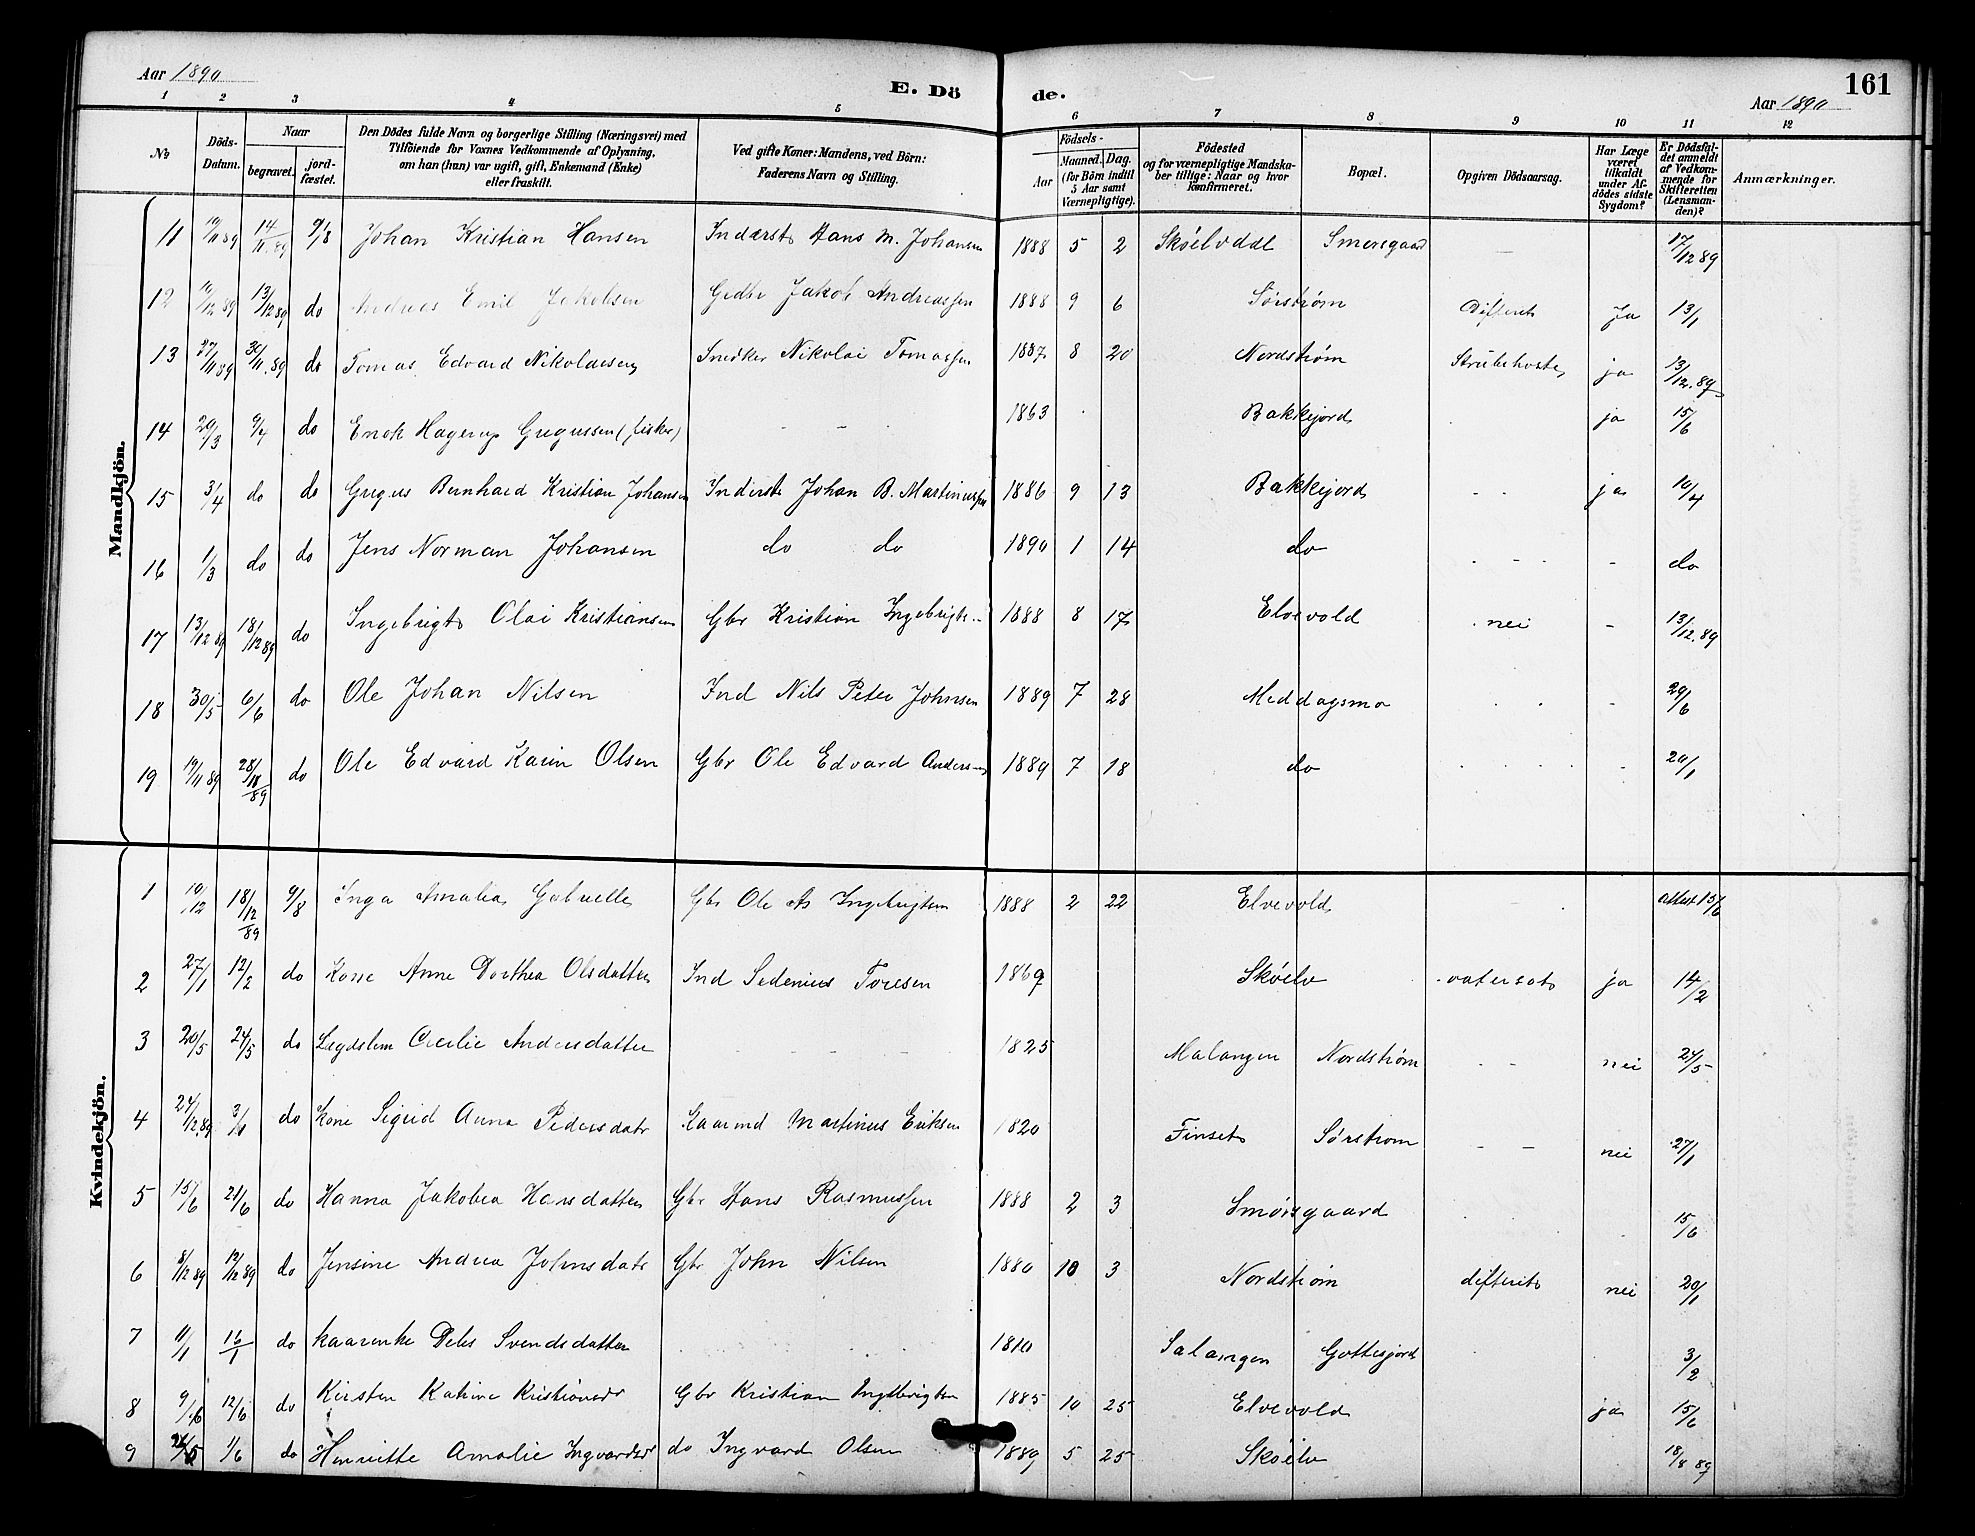 Aar 1890
E. Dö
de.
161
Aar 1890
1 2 3 4 5 6 7 8 9 10 11 12
No
Döds-Datum.
Naar
begravet.
jord-fæstet.
Den Dödes fulde Navn og borgerlige Stilling (Næringsvei) med
Tilföiende for Voxnes Vedkommende af Oplysning,
om han (hun) var ugift, gift, Enkemand (Enke)
eller fraskilt.
Ved gifte Koner: Mandens, ved Börn:
Faderens Navn og Stilling.
Födsels-
Aar
Maaned. Dag.
(for Börn indtil
5 Aar samt
Værnepligtige).
Födested
og for værnepligtige Mandska-
ber tillige: Naar og hvor
konfirmeret.
Bopæl.
Opgiven Dödsaarsag.
Har Læge
været
tilkaldt
under Af-
dödes sidste
Sygdom?
Er Dödsfal-
det anmeldt
af Vedkom-
mende for
Skifteretten
(Lensman-
den)?
Anmærkninger.
Mandkjön.
11 14/11.89 9/8 Johan Kristian Hansen Inderst Hans M. Johansen 1888 5 2 Skøelvdal Smørsgaard — 17/12 89
12 13/12 89 do Andreas Emil Jakobsen Gedbr Jakob Andreassen 1888 9 6 Sørstrøm Difterit Ja 13/1
13 27/11 89 30/11.89 do Tomas Edvard Nikolaisen Snedker Nikolai Tomassen 1887 8 20 Nordstrøm Strubehoste ja 13/12.89
14 29/3 9/4 do Enok Hagerup Gregussen (fisker) - - 1863 Bakkejord ja 15/6
15 3/4 do do Gregus Bernhard Kristian Johansen Inderst Johan B. Martinussen 1886 9 13 Bakkejord - - ja 10/4
16 1/3 do do Jens Norman Johansen do do 1890 1 14 do - - - - do
17 13/12 89 18/12 89 do Ingebrigt Olai Kristiansen Gbr Kristian Ingebrigts.. 1888 8 17 Elvevold nei - 13/12.89
18 30/5 6/6 do Ole Johan Nilsen Ind Nils Peter Johnsen 1889 7 28 Meddagsmo - 29/6
19 19/11 89 do Ole Edvard Karin Olsen Gbr Ole Edvard Andersen 1889 7 18 do 20/1
Kvindekjön.
1 10/12 18/12/89 9/8 Inga Amalia Gabrielle Gbr Ole As Ingebrigtsen 1888 2 22 Elvevold - attest 15/6
2 27/1 12/2 do Kone Anne Dorthea Olsdatter Ind Sedenius Toresen 1869 Skøelv vatersot ja 14/2
3 20/5 24/5 do Lægdslem Cecilie Andersdatter - - - 1825 Malangen Nordstrøm - - nei 24/5
4 24/12.89 3/1 do Kone Sigrid Anna Pedersdatr Kaarmd Martinus Eriksen 1820 Finset Sørstrøm - - nei 27/1
5 15/6 21/6 do Hanna Jakobea Hansdatter Gbr Hans Rasmussen 1888 2 3 Smørsgaard 15/6
6 8/12 89 12/12 89 do Jensine Andrea Johnsdatr Gbr John Nilsen 1880 10 3 Nordstrøm difterit nei 20/1
7 11/1 16/1 do Kaarenke Svendsdatter 1810 Salangen 3/2
8 12/6 do Kirsten Katrine Kristiansdr Gbr Kristian Ingebrigtsen 1885 10 25 Elvevold ja 15/6
9 1/6 do Henriette Amalie Ingvardsdr do Ingvard Olsen 1889 5 25 Skøelv 18/8 89